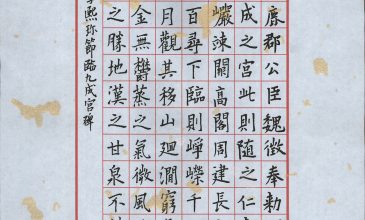 鹿郡公臣魏徵奉勅
成之宮此則隨之仁
巖竦闕高閣周建長
百尋下臨則崢嶸千
月觀其移山迴澗窮
金無鬱蒸之氣微風
之勝地漢之甘泉不
熙珍節臨九成宮碑